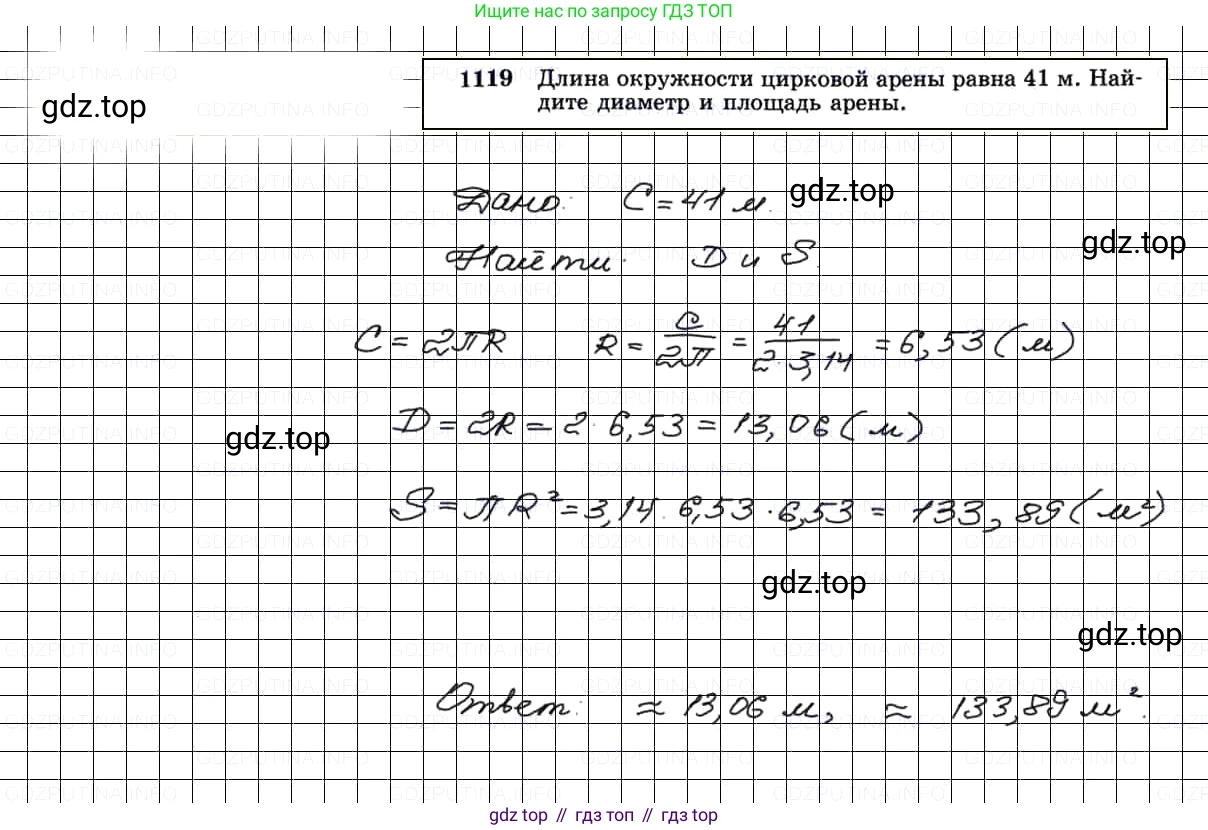 Ищите нас по запросу ГДЗ ТОП
1119 Длина окружности цирковой арены равна 41 м. Най-
дите диаметр и площадь арены.
gdz.top
Дано: C = 41 м. gdz.top
Найти: D и S. gdz.top
C = 2πR R = C/2π = 41/2·3,14 = 6,53 (м)
D = 2R = 2·6,53 = 13,06 (м)
gdz.top
S = πR² = 3,14·6,53·6,53 = 133,89 (м²)
gdz.top
gdz.top
Ответ: ≈ 13,06 м, ≈ 133,89 м².
gdz top // гдз топ // гдз top